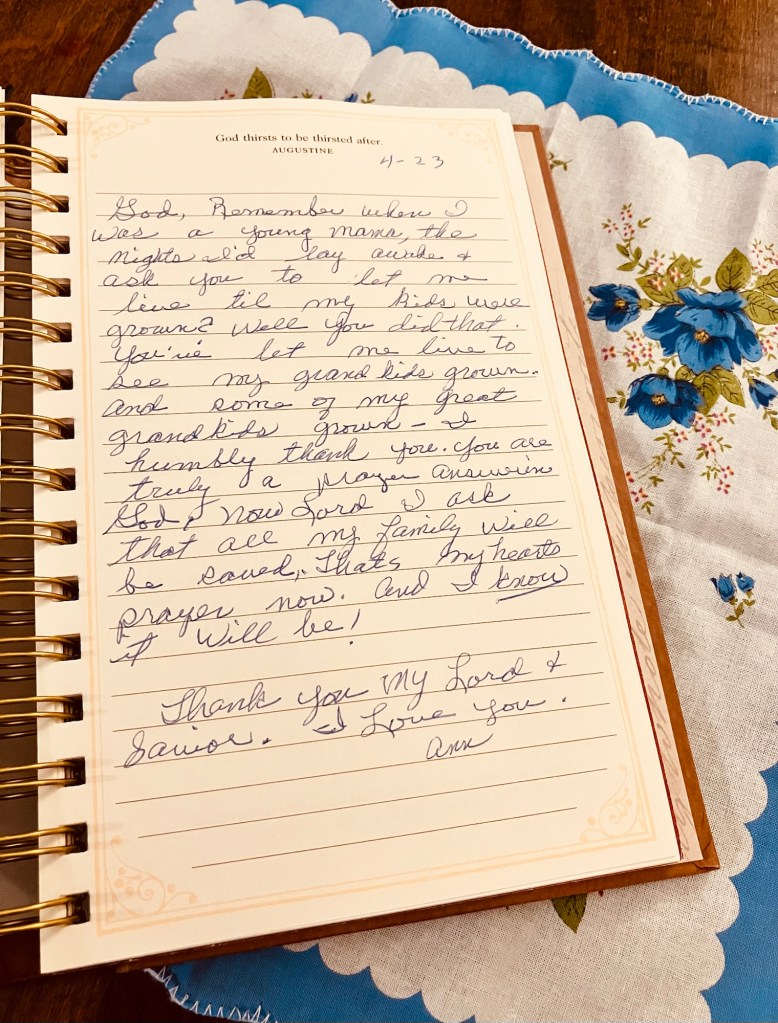 God thirsts to be thirsted after.
AUGUSTINE
4-23
God, Remember when I
was a young mama, the
nights I'd lay awake &
ask you to let me
live til my kids were
grown? Well you did that.
You've let me live to
see my grand kids grown.
And some of my great
grandkids grown - I
humbly thank you. You are
truly a prayer answerin
God, now Lord I ask
that all my family will
be saved, Thats my hearts
prayer now. And I know
it will be!
Thank you My Lord &
Savior. I Love you.
Ann